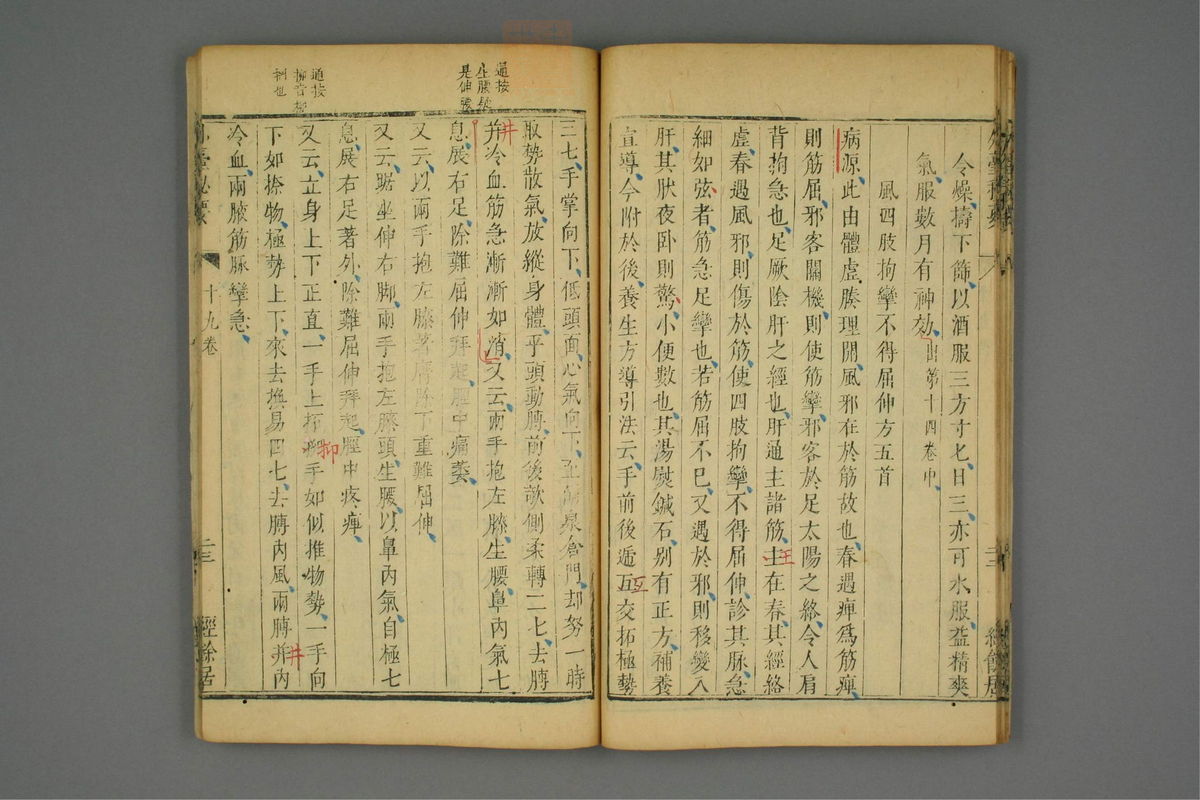 令燥擣下篩以酒服三方寸匕日三亦可水服益精爽
氣服數月有神効出第十四卷中
風四肢拘攣不得屈伸方五首
病源此由體虛腠理開風邪在於筋故也春遇痺爲筋痺
則筋屈邪客關機則使筋攣邪客於足太陽之絡令人肩
背拘急也足厥陰肝之經也肝通主諸筋主在春其經絡
虛春遇風邪則傷於筋使四肢拘攣不得屈伸診其脉急
細如弦者筋急足攣也若筋屈不已又遇於邪則移變入
肝其狀夜卧則驚小便數也其湯熨鍼石别有正方補養
宣導今附於後養生方導引法云手前後遞互交拓極勢
三七手掌向下低頭面心氣向下至涌泉倉門却努一時
取勢散氣放縱身體平頭動膊前後欹側柔轉二七去膊
井冷血筋急漸漸如消又云兩手抱左膝生腰鼻内氣七
息展右足除難屈伸拜起脛中痛萎
又云以兩手抱右膝著膺除下重難屈伸
又云踞坐伸右脚兩手抱左膝頭生腰以鼻内氣自極七
息展右足著外除難屈伸拜起脛中疼痺
又云立身上下正直一手上拓手如似推物勢一手向
下如捺物極勢上下來去換易四七去膊内風兩膊井内
冷血兩腋筋脉攣急
通按
生腰疑
是伸腰
通按
十九卷
經餘居
互
王
井
抑
井